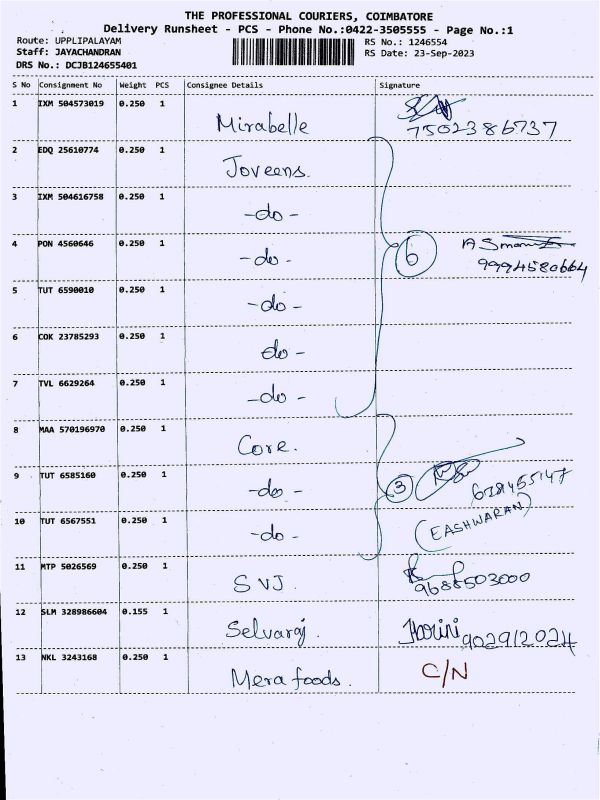 THE PROFESSIONAL COURIERS, COIMBATORE
Delivery Runsheet - PCS - Phone No.:0422-3505555 - Page No.:1
Route: UPPLIPALAYAM RS No.: 1246554
Staff: JAYACHANDRAN RS Date: 23-Sep-2023
DRS No.: DCJB124655401
S No Consignment No Weight PCS Consignee Details Signature
1 IXM 504573019 0.250 1 Mirabelle 7502386737
2 EDQ 25610774 0.250 1 Joveens.
3 IXM 504616758 0.250 1 -do-
4 PON 4560646 0.250 1 -do- 6 9994580664
5 TUT 6590010 0.250 1 -do-
6 COK 23785293 0.250 1 do-
7 TVL 6629264 0.250 1 -do-
8 MAA 570196970 0.250 1 Core.
9 TUT 6585160 0.250 1 -do- 3
10 TUT 6567551 0.250 1 -do- (EASHWARAN)
11 MTP 5026569 0.250 1 SVJ. 9688503000
12 SLM 328986604 0.155 1 Selvaraj. Harini 902912024
13 NKL 3243168 0.250 1 Mera foods. C/N